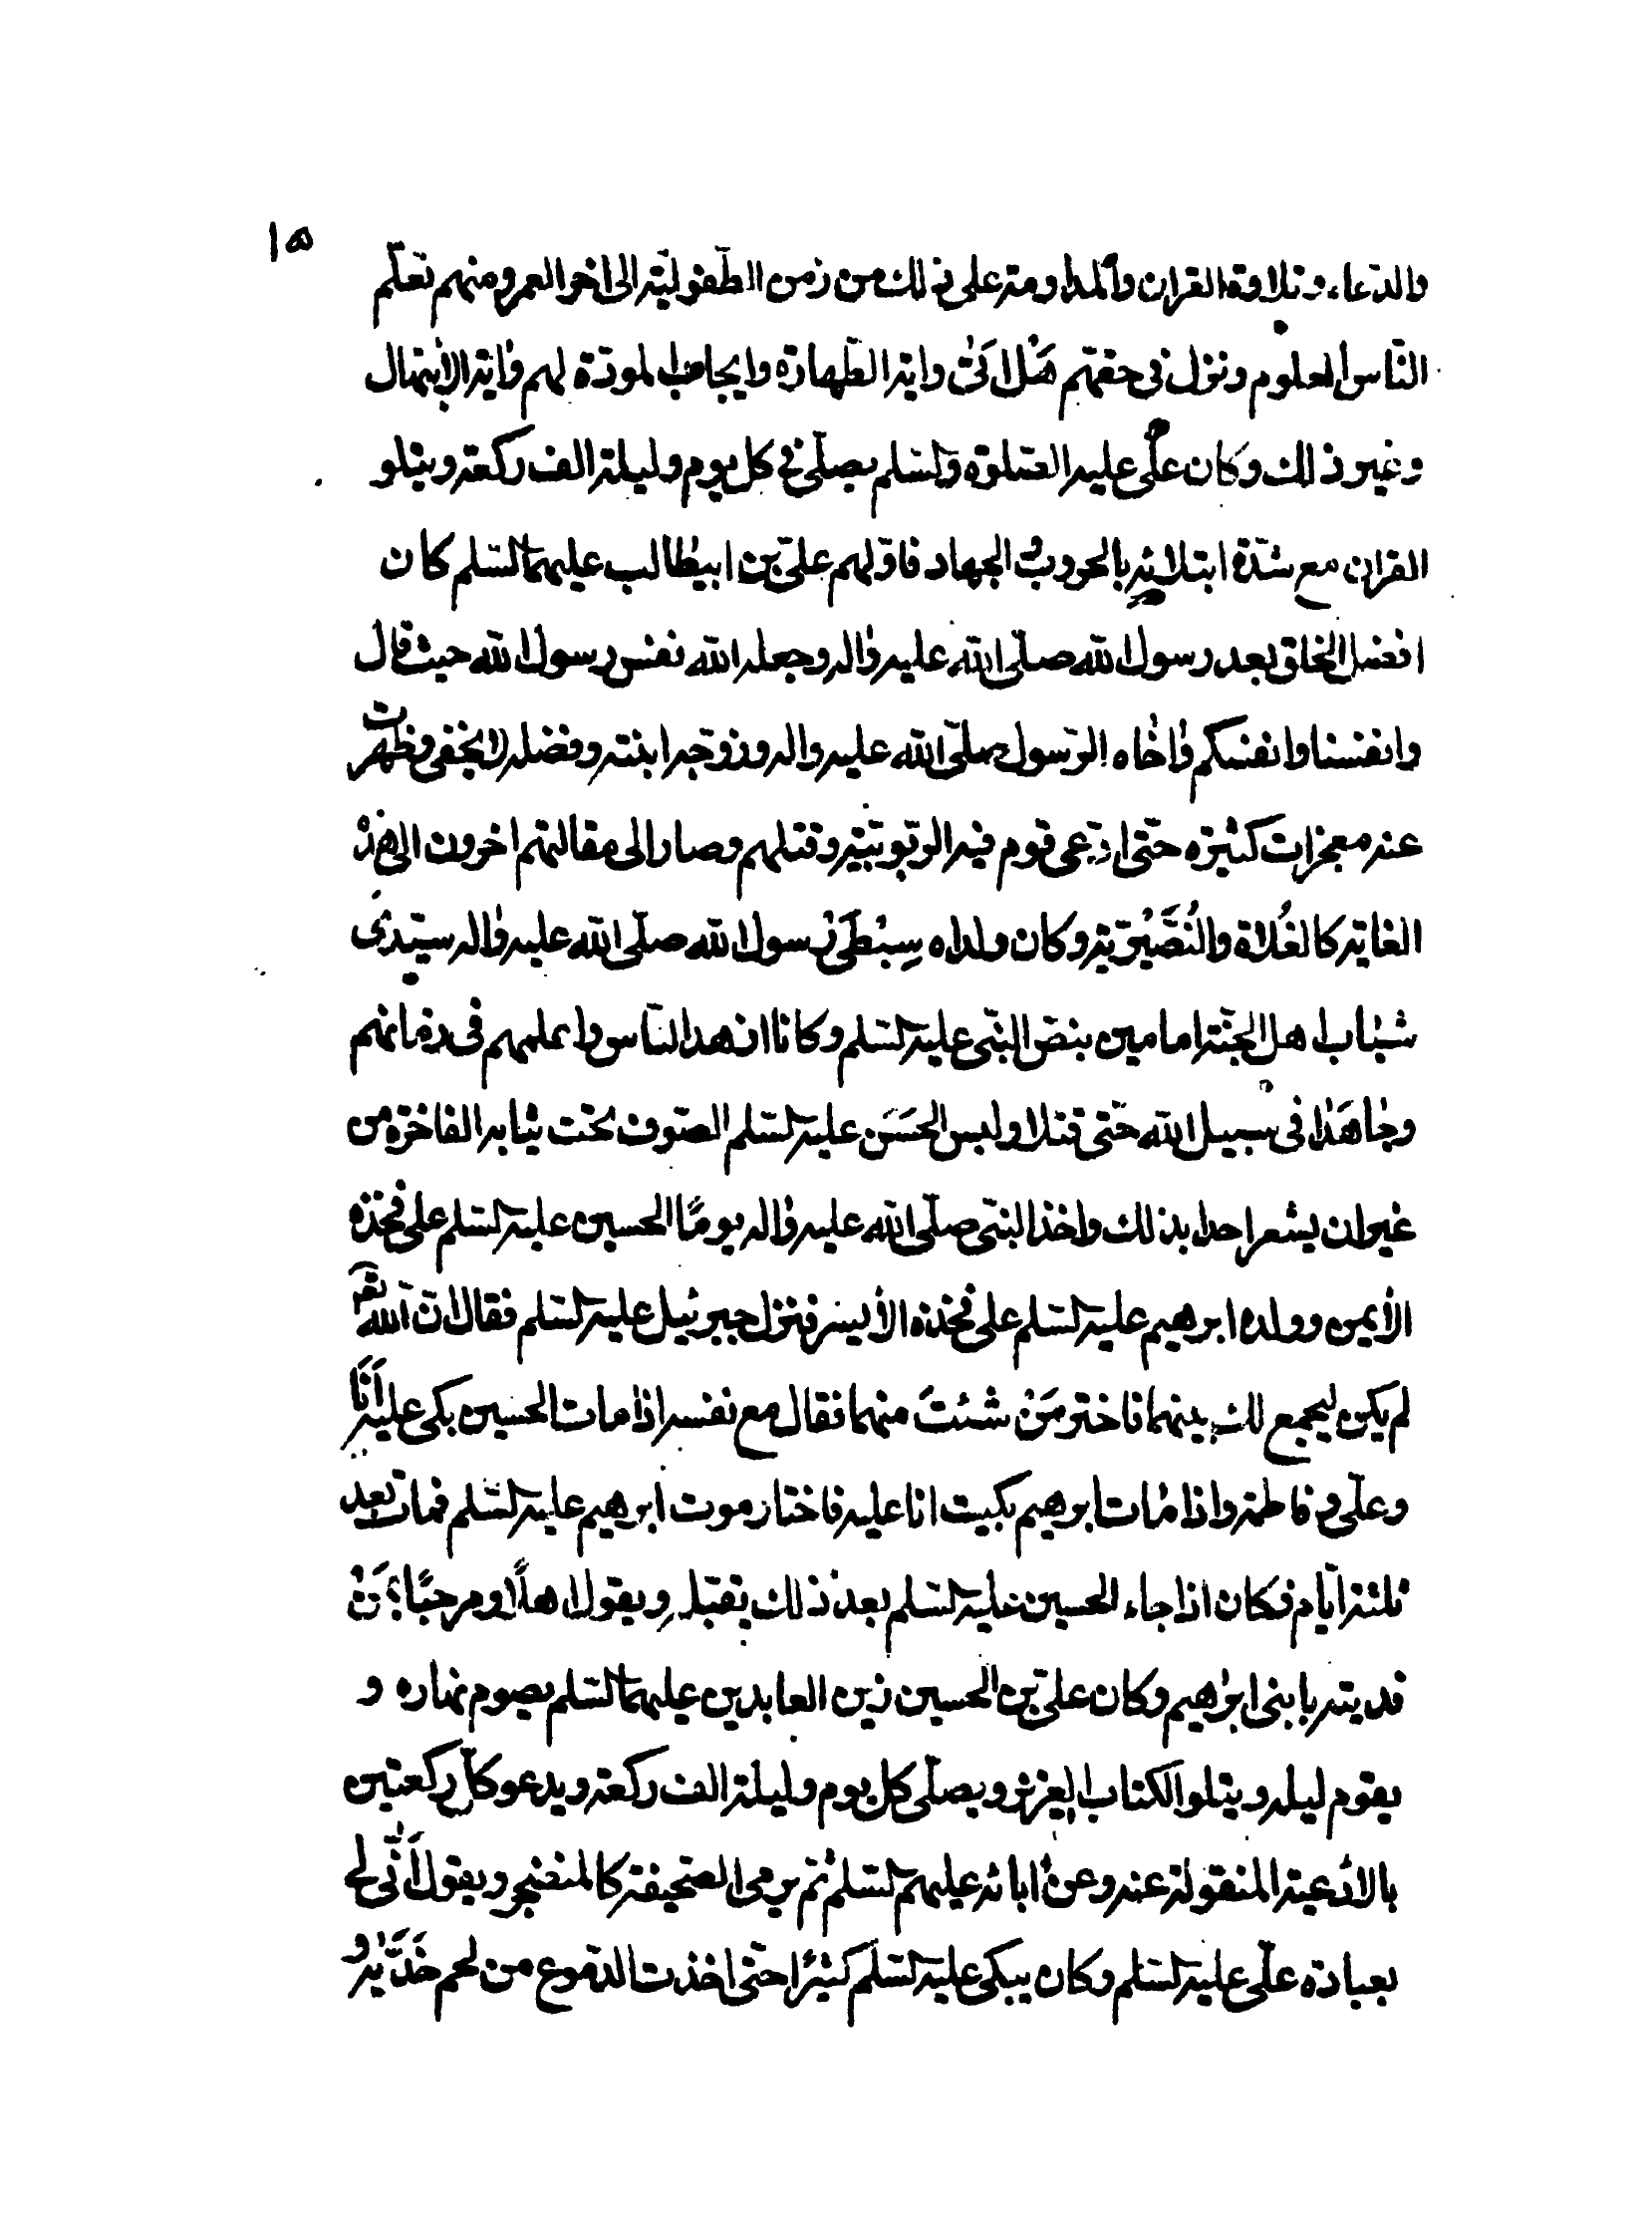 ١٥
والدّعاء وتلاوة القران والمداومة على ذلك من زمن الطّفوليّة الى اخر العمر ومنهم تعلّم
النّاس العلوم ونزل فى حقّهم هَلْ اَتىٰ واية الطّهارة وايجاب المودّة لهم واٰية الابتهال
وغير ذلك وكان علّى عليه الصّلوة والسّلم يصلّى فى كل يوم وليلة الف ركعة ويتلو
القران مع شدّة ابتلائه بالحروب والجهاد فاوّلهم علىّ بن ابيطالب عليهما السّلم كان
افضل الخلق بعد رسول الله صلّى الله عليه واٰله وجعله الله نفس رسول الله حيث قال
وانفسنا وانفسكم واٰخاه الرّسول صلّى الله عليه واله وزوّجه ابنته وفضله لا يخفى وظهرت
عنه معجزات كثيرة حتّى ادّعى قوم فيه الرّبوبيّة وقتلهم وصار الى مقالتهم اخرون الى هذه
الغاية كالغُلاة والنُّصَيْريّة وكان ولداه سِبْطَىْ رسول الله صلّى الله عليه واٰله سيّدَىْ
شباب اهل الجنّة امامين بنصّ النّبى عليه السّلم وكانا ازهد النّاس واعلمهم فى زمانهم
وجاهَدا فى سبيل الله حتّى قتلا ولبس الحسَن عليه السّلم الصّوف تحت ثيابه الفاخرة من
غير ان يشعر احدا بذلك واخذ النبّى صلّى الله عليه واٰله يومًا الحسين عليه السّلم على فخذه
الأيمن وولده ابرهيم عليه السّلم على فخذه الأيسر فنزل جبرئيل عليه السّلم فقال انّ الله تعٰ
لم يكن ليجمع لك بينهما فاختر مَنْ شئتَ منهما فقال مع نفسه اذا مات الحسين بكى عليه اَنَا
وعلّى وفاطمة واذا مات ابرهيم بكيت انا عليه فاختار موت ابرهيم عليه السّلم فمات بعد
ثلثة ايّام فكان اذا جاء الحسين عليه السّلم بعد ذلك يقبّله ويقول اهلًا ومرحبًا بمَنْ
فديته بابنى ابرٰهيم وكان علىّ بن الحسين زين العابدين عليهما السّلم يصوم نهاره و
يقوم ليله ويتلو الكتاب العزيز ويصلّى كل يوم وليلة الف ركعة ويدعو كلّ ركعتين
بالأدعية المنقولة عنه وعن اٰبائه عليهم السّلم ثم يرمى الصّحيفة كالمتضجر ويقول اَنّٰى لى
بعبادة علّى عليه السّلم وكان يبكى عليه السّلم كثيرًا حتّى اخذت الدّموع من لحم خَدَّيْه و